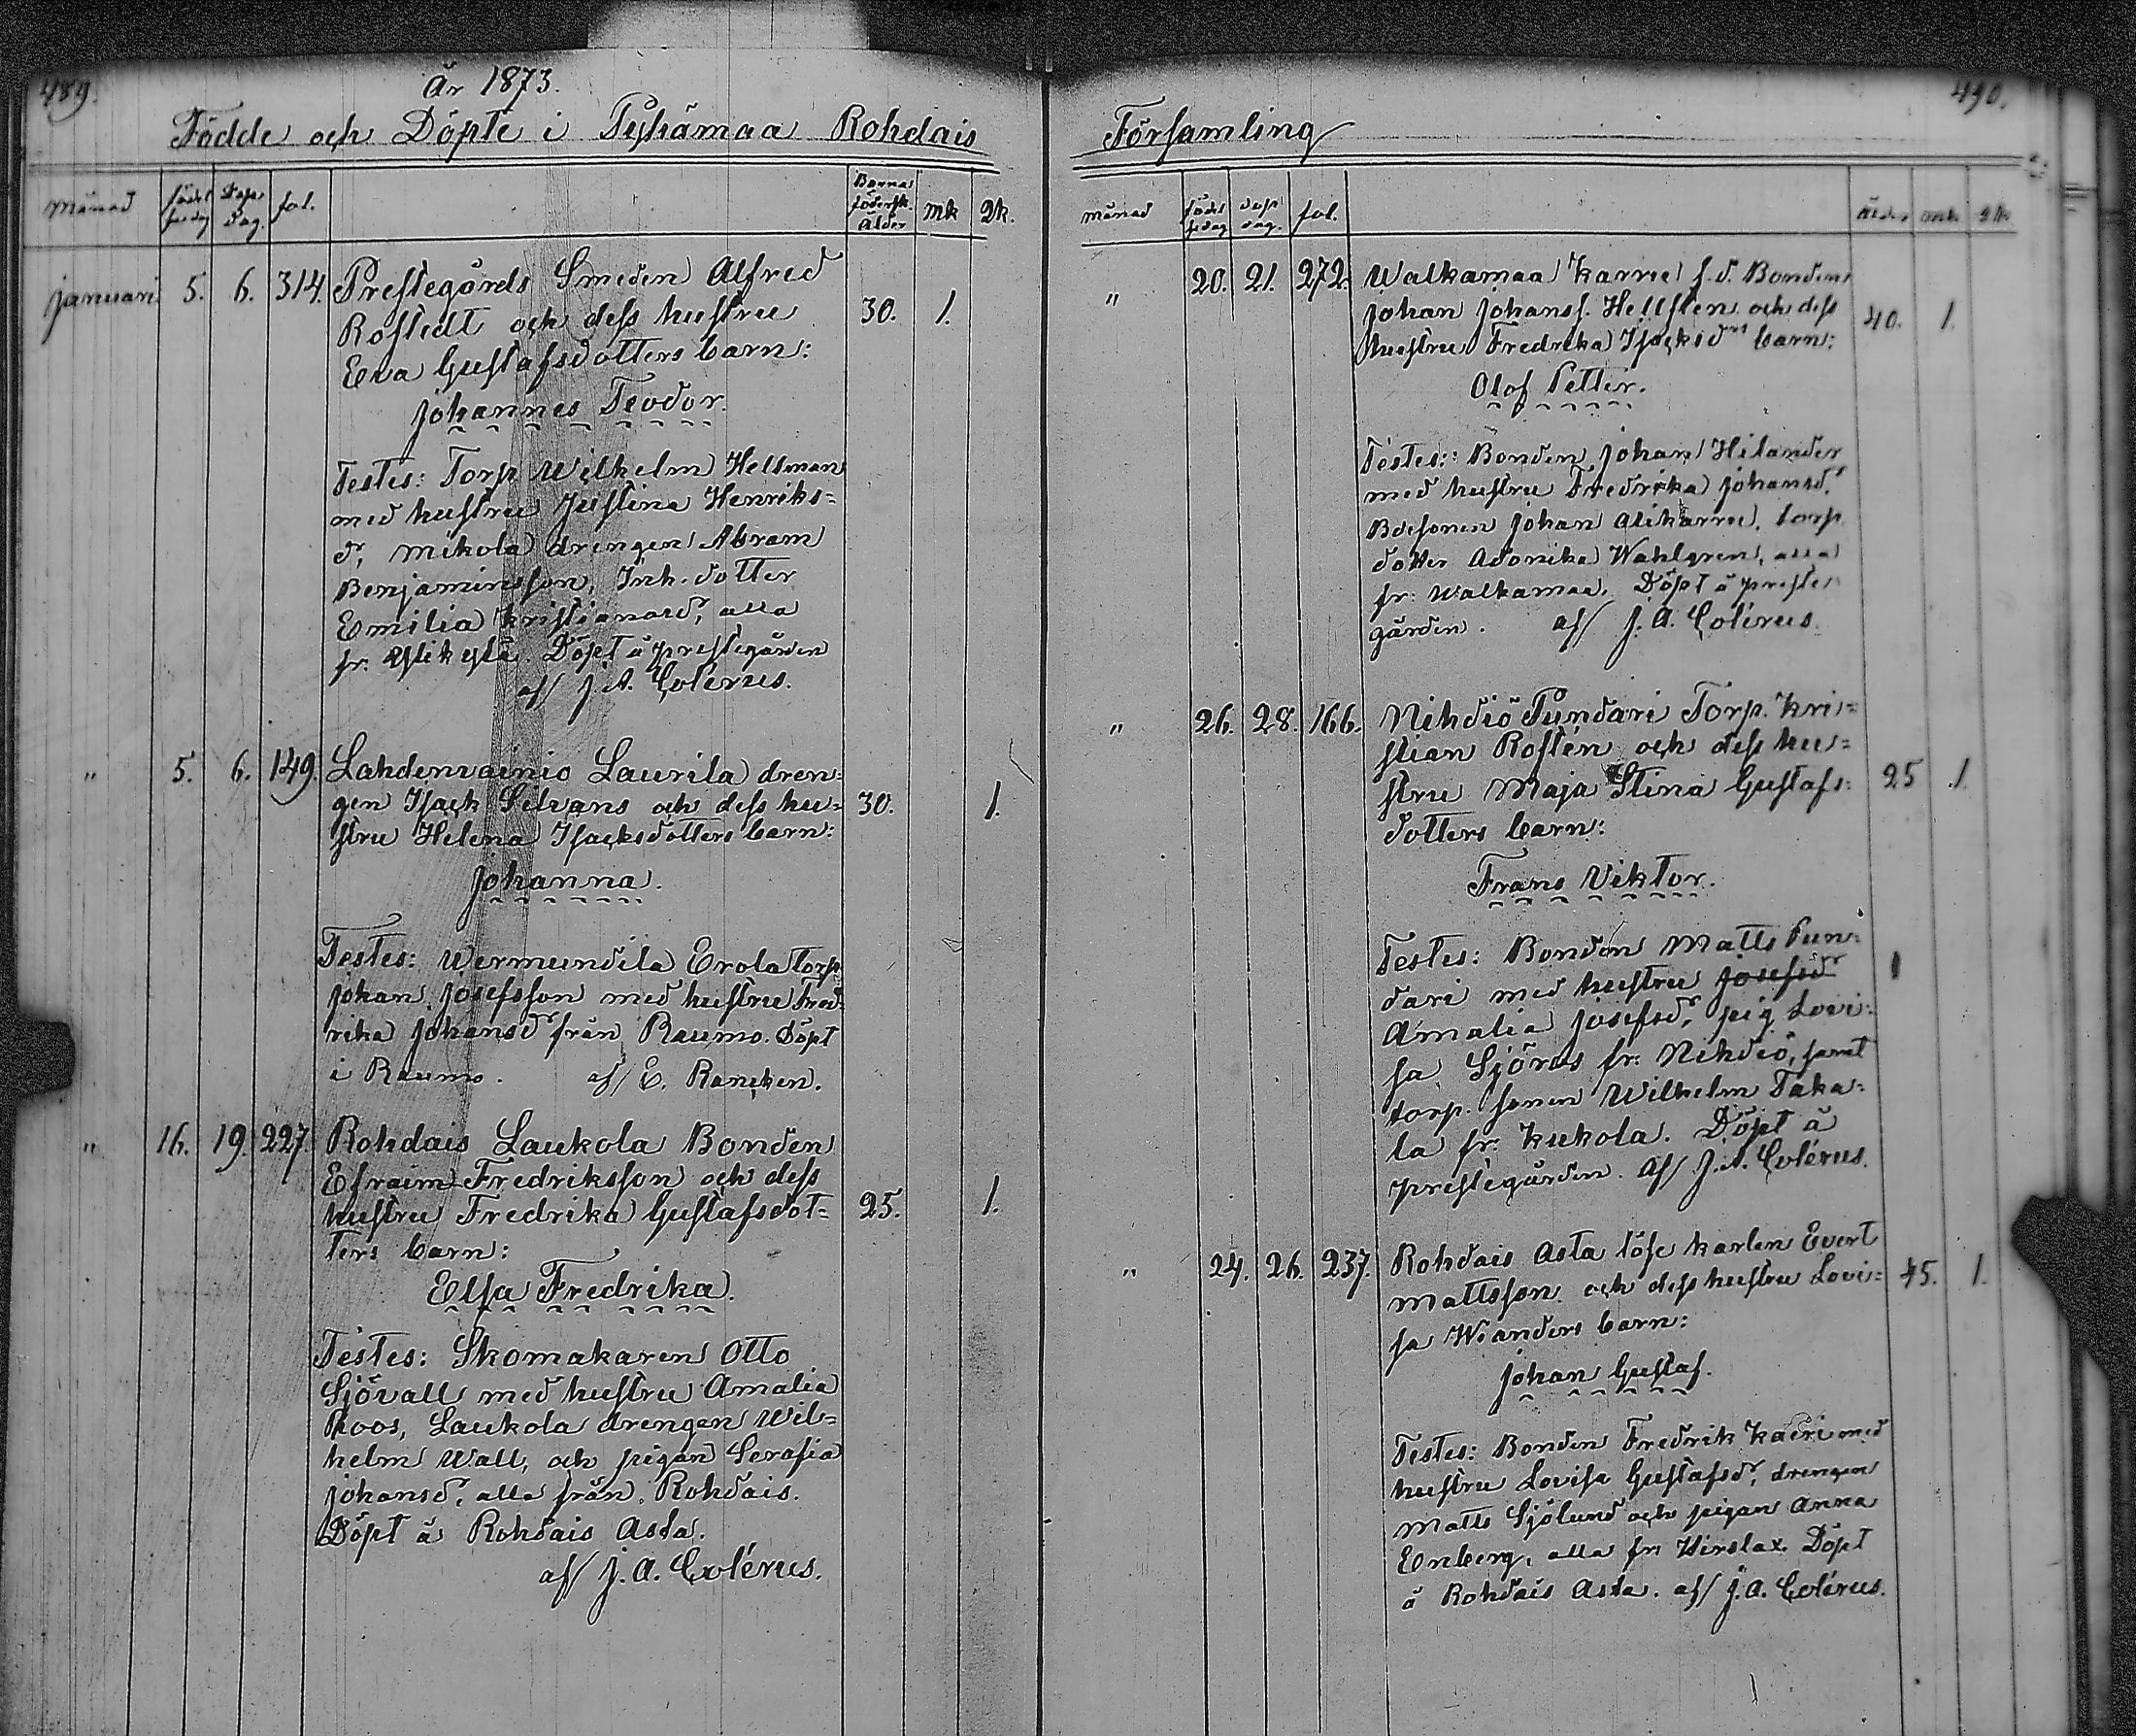 489.
År 1873.
Födde och Döpte i Pyhämaa Rohdais
Månad födelsedag Döpe Dag. fol. Barna födersk. Ålder Mk Qk.
Januari 5. 6. 314. Prestegårds Smeden Alfred
Rostedt och dess hustru 30. 1.
Eva Gustafsdotters barn:
Johannes Teodor.
Testes: Torp Wilhelm Hellman
med hustru Justina Henriks=
dr, Mikola drengen Abram
Benjaminsson, Inh. dotter
Emilia Kristiansdr, alla
fr. Ylikylä. Döpt å prestegården
af/ J. A. Colérus.
" 5. 6. 149. Lahdenvainio Laurila dren=
gen Isack Silvans och dess hu= 30. 1.
stru Helena Isacksdotters barn:
Johanna.
Testes: Wermundila Erola torp.
Johan Josefsson med hustru Fred=
rika Johansdr från Raumo. Döpt
i Raumo. af/ E. Rancken.
" 16. 19. 227. Rohdais Laukola Bonden
Efraim Fredriksson och dess
hustru Fredrika Gustafsdot= 25. 1.
ters barn:
Elsa Fredrika.
Testes: Skomakaren Otto
Sjövall med hustru Amalia
Roos, Laukola drengen Wil=
helm Wall, och pigan Serafia
Johansd, alla från Rohdais.
Döpt å Rohdais Asta.
af/ J. A. Colérus.
490.
Församling
Månad födelsedag döp dag. fol. ålder mk Qk
" 20. 21. 272. Walkamaa Karru f. d. Bonden
Johan Johanss. Hellsten och dess 40. 1.
hustru Fredrika Isacksdrs barn:
Olof Petter.
Testes: Bonden Johan Hilander
med hustru Fredrika Johansd.
Bdesonen Johan Alikarru, torp.
dotter Adonika Wahlgren, alla
fr. Walkamaa. Döpt å preste
gården. af/ J. A. Colérus.
" 26. 28. 166. Nihdiö Pundari Torp. Kri=
stian Rostén och dess hu=
stru Maja Stina Gustafs= 25 1.
dotters barn:
Frans Viktor.
Testes: Bonden Matts Pun=
dari med hustru Josefsdr
Amalia Josefsdr, pig. Lovi=
sa Sjöroos fr. Nihdiö, samt
torp. sonen Wilhelm Taka=
la fr. Kukola. Döpt å
prestegården. Af/ J. A. Colérus.
" 24. 26. 237. Rohdais Asta löse karlen Evert
Mattsson och dess hustru Lovi= 45. 1.
sa Wianders barn:
Johan Gustaf.
Testes: Bonden Fredrik Kaeri med
hustru Lovisa Gustafsdr, drengen
Matts Sjölund och pigan Anna
Enberg, alla fr. Hirslax. Döpt
å Rohdais Asta. af/ J. A. Colérus.